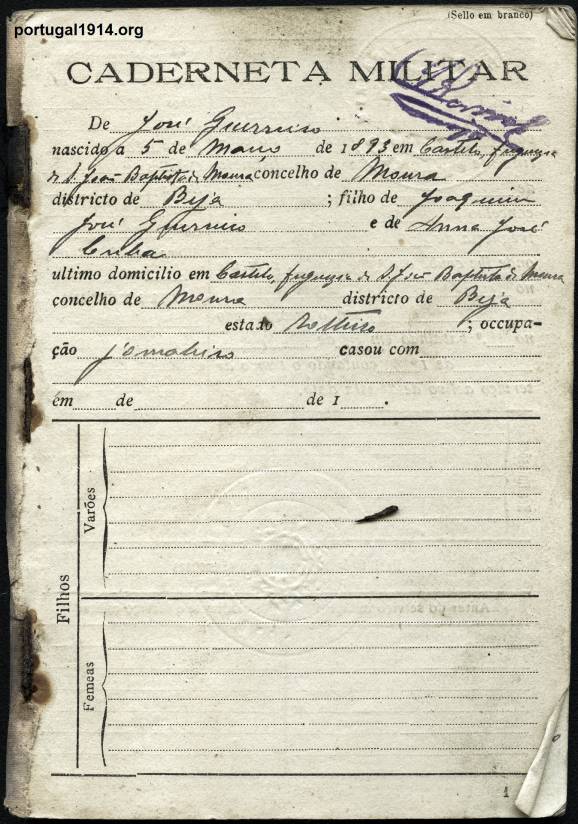 portugal1914.org
(Sello em branco)
CADERNETA MILITAR
De José Guerreiro
nascido a 5 de Março de 1893 em Castelo, freguesia
de S. João Baptista de Moura concelho de Moura
districto de Beja ; filho de Joaquim
José Guerreiro e de Anna José
Cuba
ultimo domicilio em Castelo, freguesia de S. João Baptista de Moura
concelho de Moura districto de Beja
estado solteiro ; occupa-
ção jornaleiro casou com
em de de 1 .
Filhos
Varões
Femeas
1